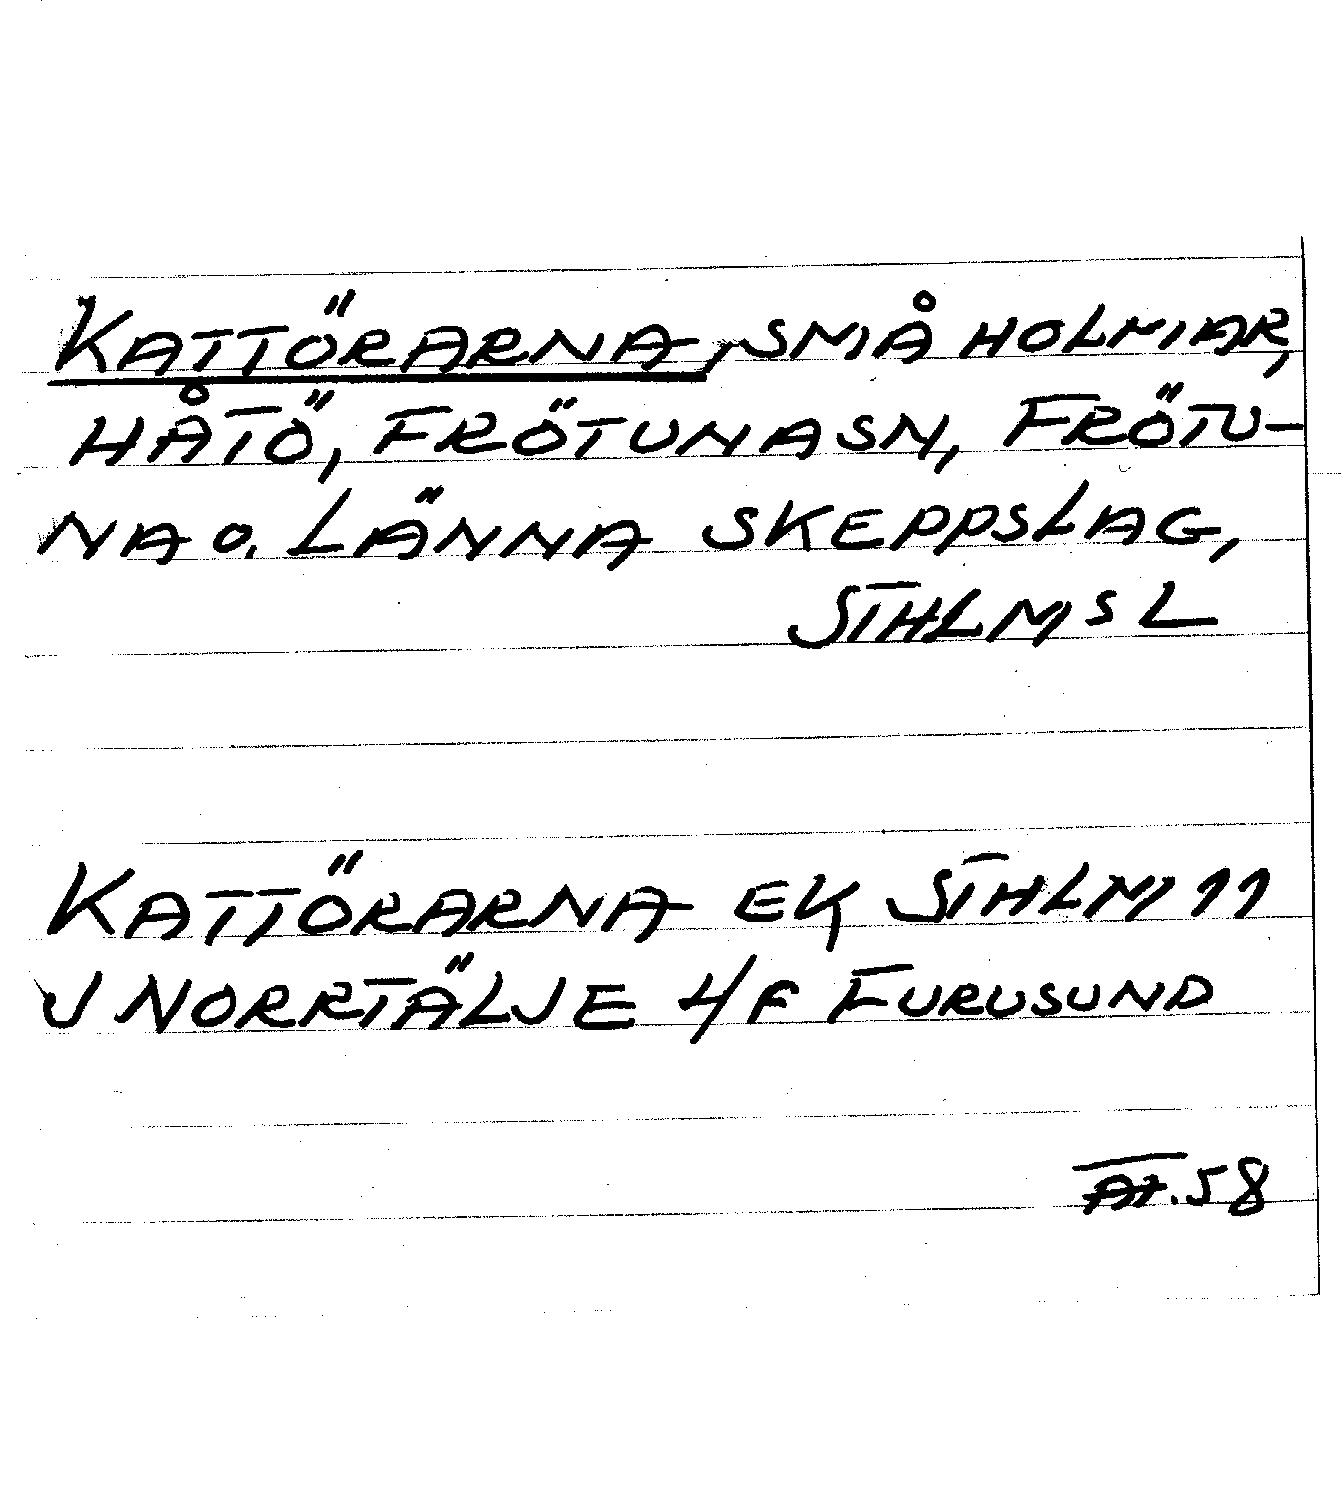 KATTÖRARNA, SMÅ HOLMAR,
HÅTÖ, FRÖTUNA SN, FRÖTU-
NA O. LÄNNA SKEPPSLAG,
STHLMS L
KATTÖRARNA EK STHLM 11
J NORRTÄLJE 4/F FURUSUND
58